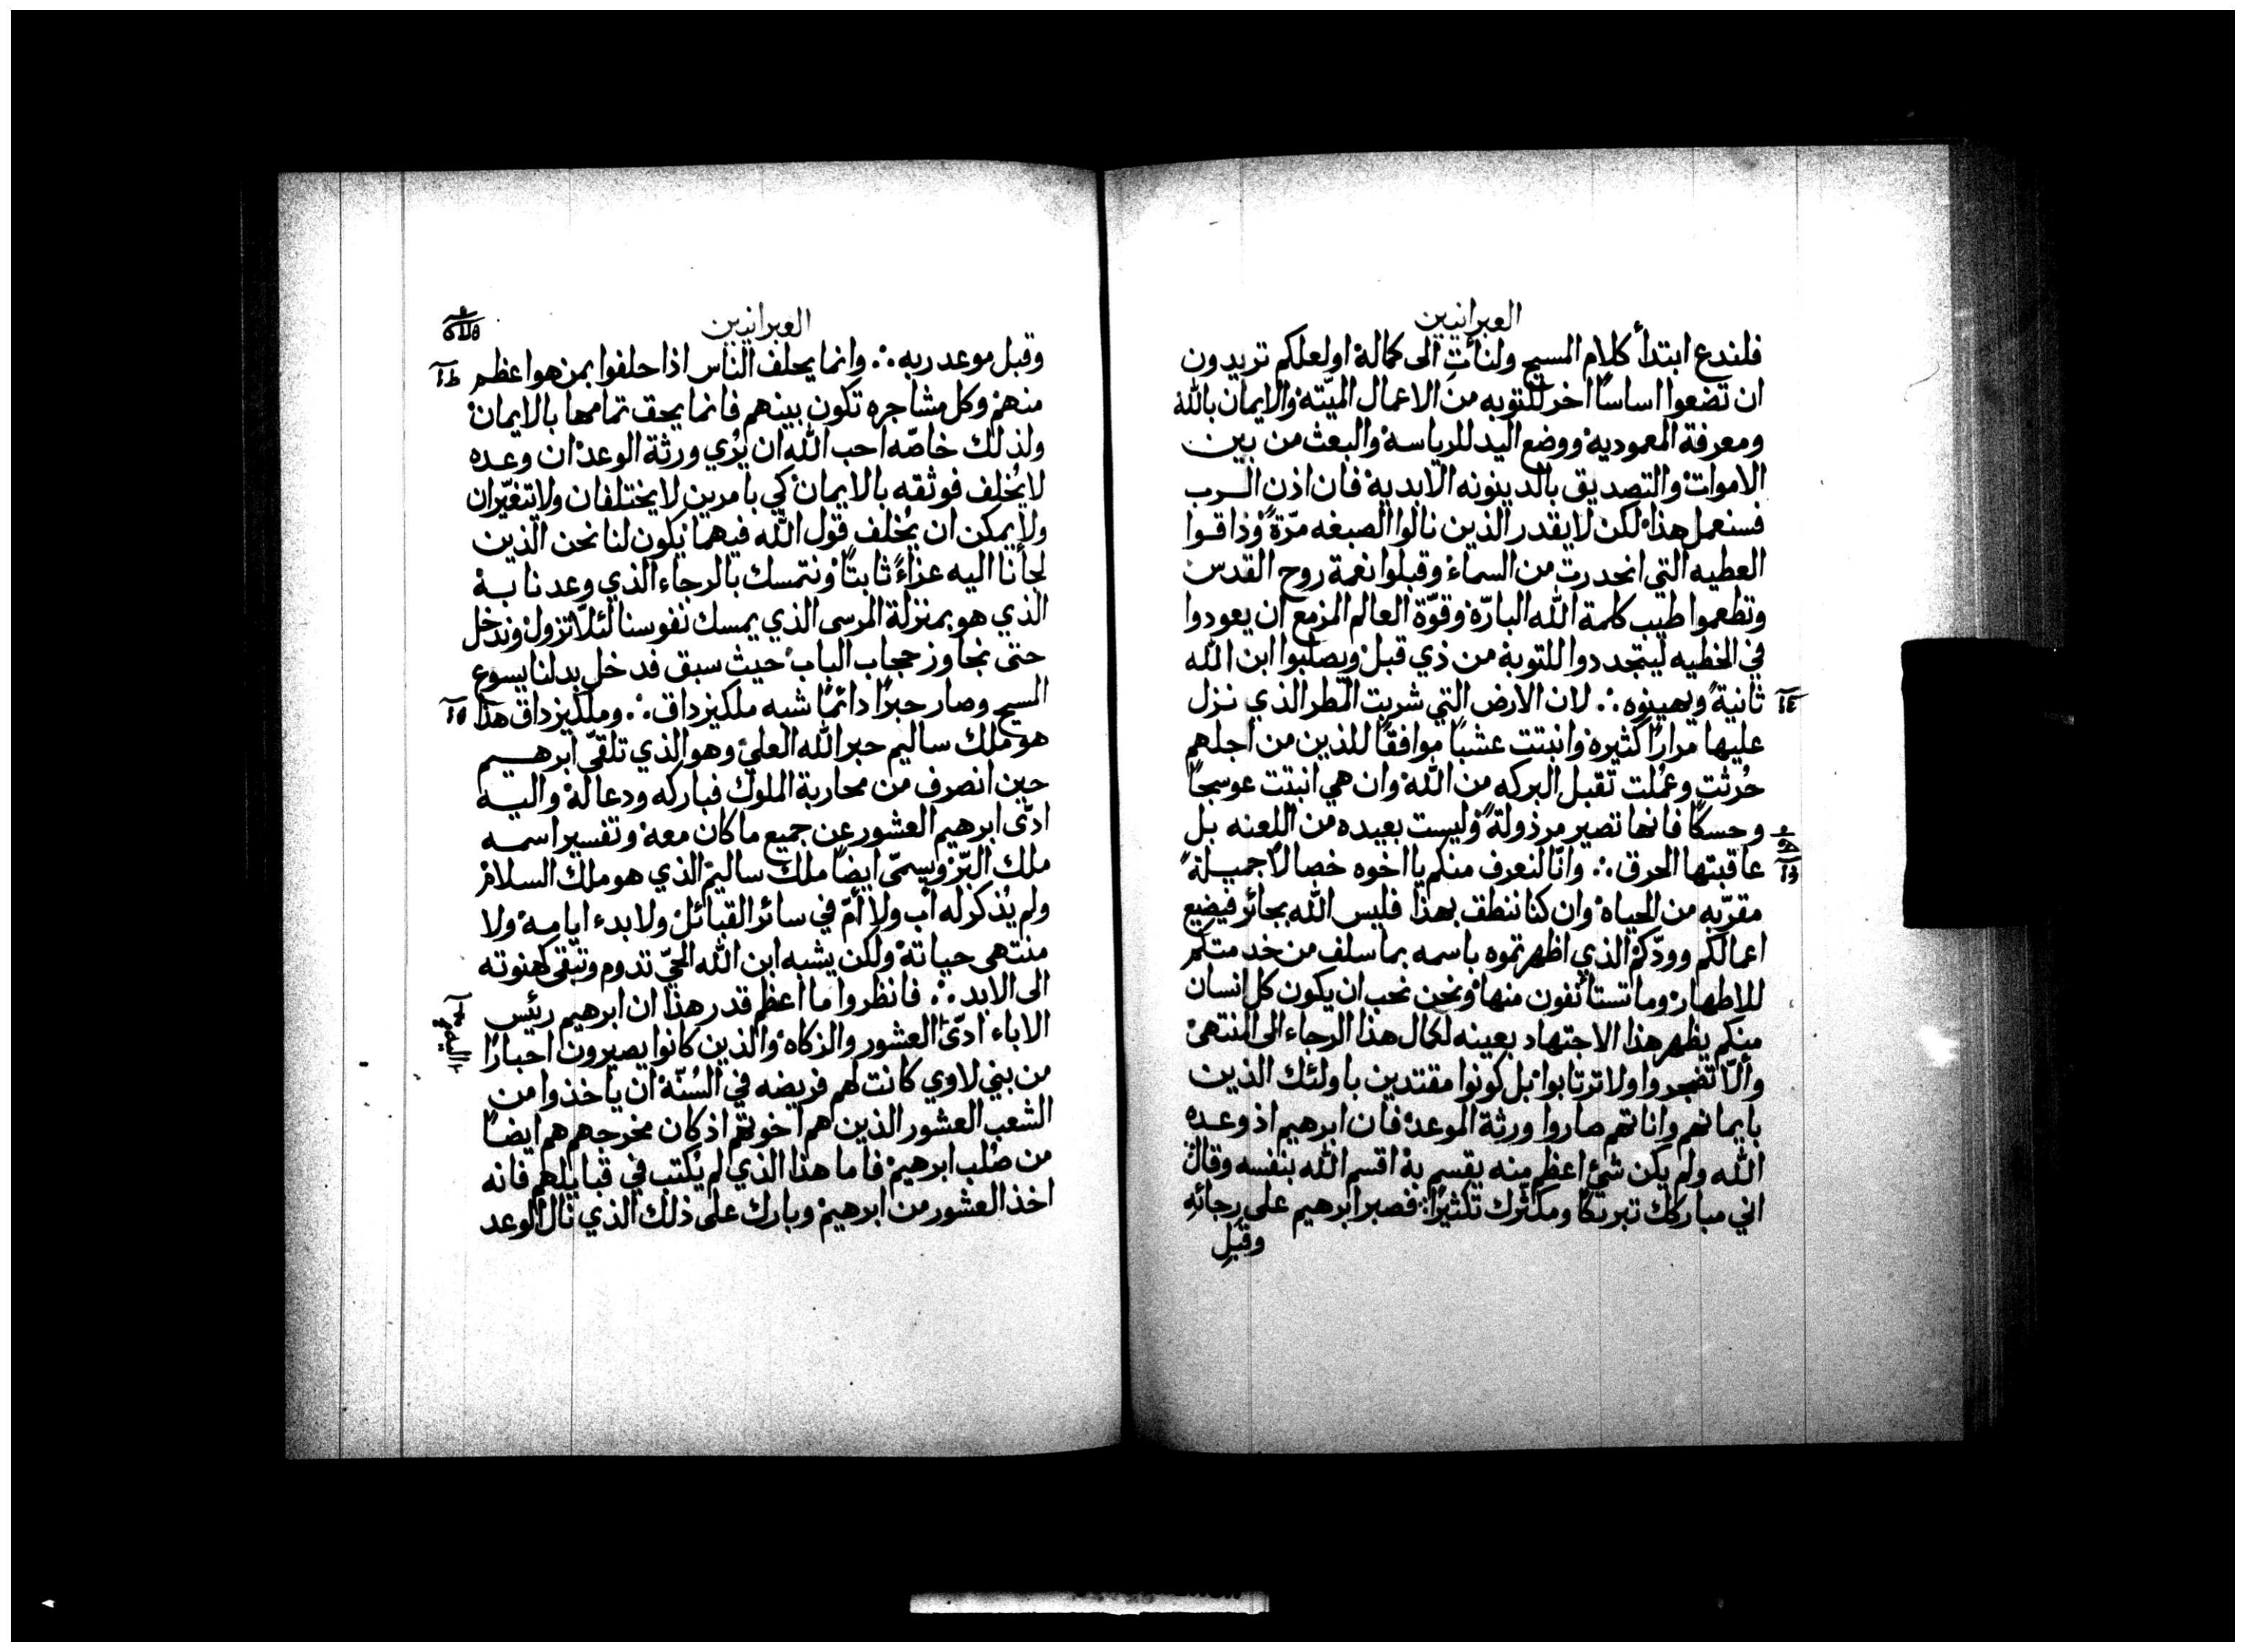 العبرانيين
فلندع ابتدأ كلام المسيح ولنأتِ الى كماله اولعلكم تريدون
ان تضعوا اساسًا اخر للتوبه من الاعمال الميّته والايمان بالله
ومعرفة المعموديه ووضع اليد للرياسه والبعث من بين
الاموات والتصديق بالدينونه الابديه فان اذن الرب
فسنعمل هذا لكن لا يقدر الذين نالوا الصبغه مرّةً وذاقوا
العطيه التي انحدرت من السماء وقبلوا نعمة روح القدس
وتطعموا طيب كلمة الله البارّه وقوّة العالم المزمع ان يعودوا
في الخطيه ليتجددوا للتوبة من ذي قبل ويصلبوا ابن الله
ثانيةً ويهينوه ∴ لان الارض التي شربت المطر الذي نزل
عليها مرارًا كثيره وانبتت عشبًا موافقًا للذين من اجلهم
حُرثت وعُملت تقبل البركه من الله وان هي انبتت عوسجًا
وحسكًا فانها تصير مرذولةً وليست بعيده من اللعنه بل
عاقبتها الحرق ∴ وانّا لنعرف منكم يا اخوه خصالًا جميلةً
مقرّبه من الحياه وان كنا ننطق بهذا فليس الله بجائر فيضيع
اعمالكم وودّكم الذي اظهرتموه باسمه بما سلف من خدمتكم
للاطهار وما تستأنفون منها ونحن نحب ان يكون كل انسان
منكم يظهر هذا الاجتهاد بعينه لكمال هذا الرجاء الى المنتهى
وألّا تضجروا ولا ترتابوا بل كونوا مقتدين باولئك الذين
بايمانهم واناتهم صاروا ورثة الموعد فان ابرهيم اذ وعده
الله ولم يكن شئ اعظم منه يقسم به اقسم الله بنفسه وقال
اني مباركك تبريكًا ومكثّرك تكثيرًا فصبر ابرهيم على رجائه
وقبل
العبرانيين
وقبل موعد ربه ∴ وانما يحلف الناس اذا حلفوا بمن هو اعظم
منهم وكل مشاجره تكون بينهم فانما يحق تمامها بالايمان
ولذلك خاصّه احب الله ان يُري ورثة الوعد ان وعده
لا يُخلف فوثقه بالايمان كي بامرين لا يختلفان ولا يتغيّران
ولا يمكن ان يُخلف قول الله فيهما يكون لنا نحن الذين
لجأنا اليه عزاءً ثابتًا ونتمسك بالرجاء الذي وعدنا به
الذي هو بمنزلة المرسى الذي يمسك نفوسنا لئلّا تزول وندخل
حتى نجاوز حجاب الباب حيث سبق فدخل بدلنا يسوع
المسيح وصار حبرًا دائمًا شبه ملكيزداق ∴ وملكيزداق هذا
هو ملك ساليم حبر الله العلي وهو الذي تلقّى ابرهيم
حين انصرف من محاربة الملوك فباركه ودعا له واليه
ادّى ابرهيم العشور عن جميع ما كان معه وتفسير اسمه
ملك البرّ ويسمّى ايضًا ملك ساليم الذي هو ملك السلام
ولم يُذكر له أب ولا أمّ في سائر القبائل ولا بدء ايامه ولا
منتهى حياته ولكن يشبه ابن الله الحيّ تدوم وتبقى كهنوته
الى الابد ∴ فانظروا ما اعظم قدر هذا ان ابرهيم رئيس
الاباء ادّى العشور والزكاه والذين كانوا يصيرون احبارًا
من بني لاوي كانت لهم فريضه في السُنّة ان ياخذوا من
الشعب العشور الذين هم اخوتهم اذ كان مخرجهم هم ايضًا
من صُلب ابرهيم فاما هذا الذي لم يُكتب في قبايلهم فانه
اخذ العشور من ابرهيم وبارك على ذلك الذي نال الوعد